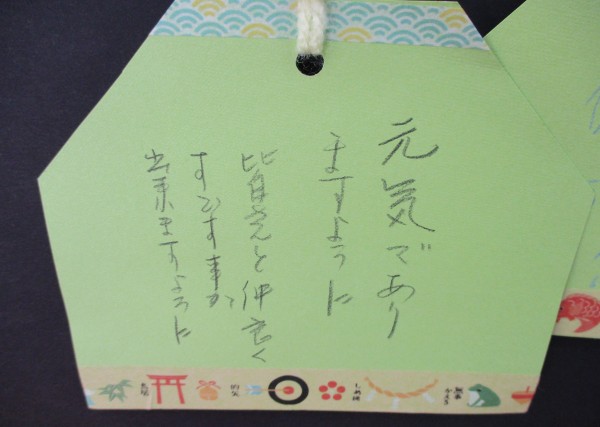 元気であり
ますように
皆さんと仲良く
すごす事が
出来ますように
鳥居
的矢
しめ縄